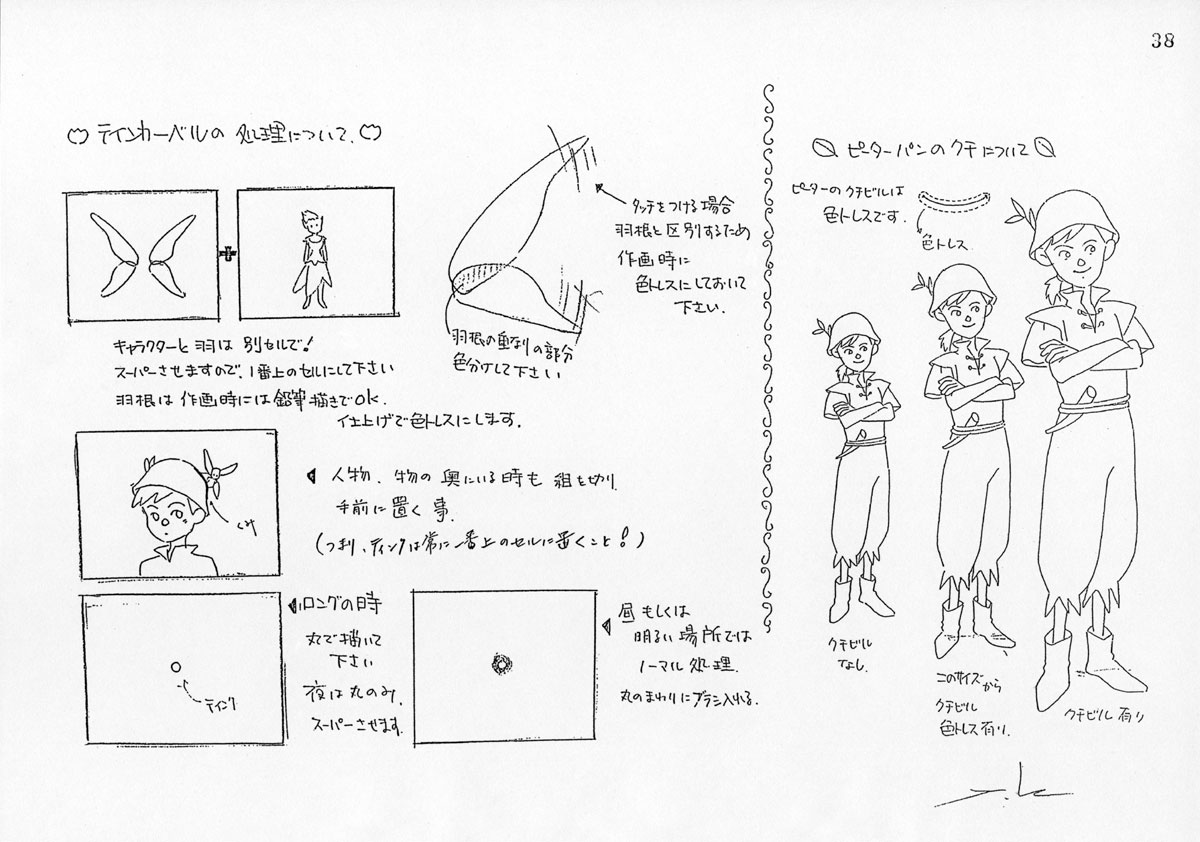 38
ティンカーベルの処理について.
キャラクターと羽は別セルで!
スーパーさせますので、1番上のセルにして下さい
羽根は作画時には鉛筆描きでOK.
仕上げで色トレスにします.
タッチをつける場合
羽根と区別するため
作画時に
色トレスにしておいて
下さい.
羽根の重なりの部分
色分けして下さい
人物、物の奥にいる時も 組を切り
手前に置く事.
(つまり、ティンクは常に一番上のセルに置くこと!)
くみ
ロングの時
丸で描いて
下さい
夜は丸のみ.
スーパーさせます.
ティンク
昼もしくは
明るい場所では
ノーマル処理.
丸のまわりにブラシ入れる.
ピーターパンのクチについて
ピーターのクチビルは
色トレスです.
色トレス
クチビル
なし.
このサイズから
クチビル
色トレス有り.
クチビル有り